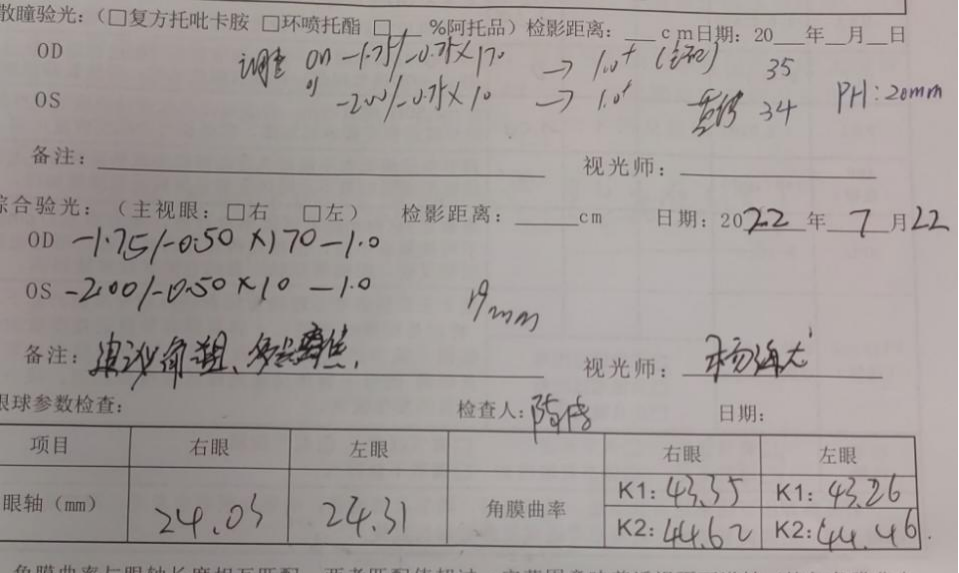 散瞳验光：（□复方托吡卡胺 □环喷托酯 □__ %阿托品）检影距离：___ cm日期：20__年__月__日
OD 调整 OD -1.75/-0.75×170 → 1.0+ 35
OS -2.00/-0.75×10 → 1.0+ 34 PH：20mm
备注： 视光师：
综合验光：（主视眼：□右 □左） 检影距离：____cm 日期：2022年7月22
OD -1.75/-0.50×170-1.0
OS -2.00/-0.50×10-1.0 19mm
备注： 视光师：
眼球参数检查： 检查人： 日期：
项目 右眼 左眼 右眼 左眼
眼轴（mm） 24.03 24.31 角膜曲率 K1：43.35 K1：43.26
K2：44.62 K2：44.46